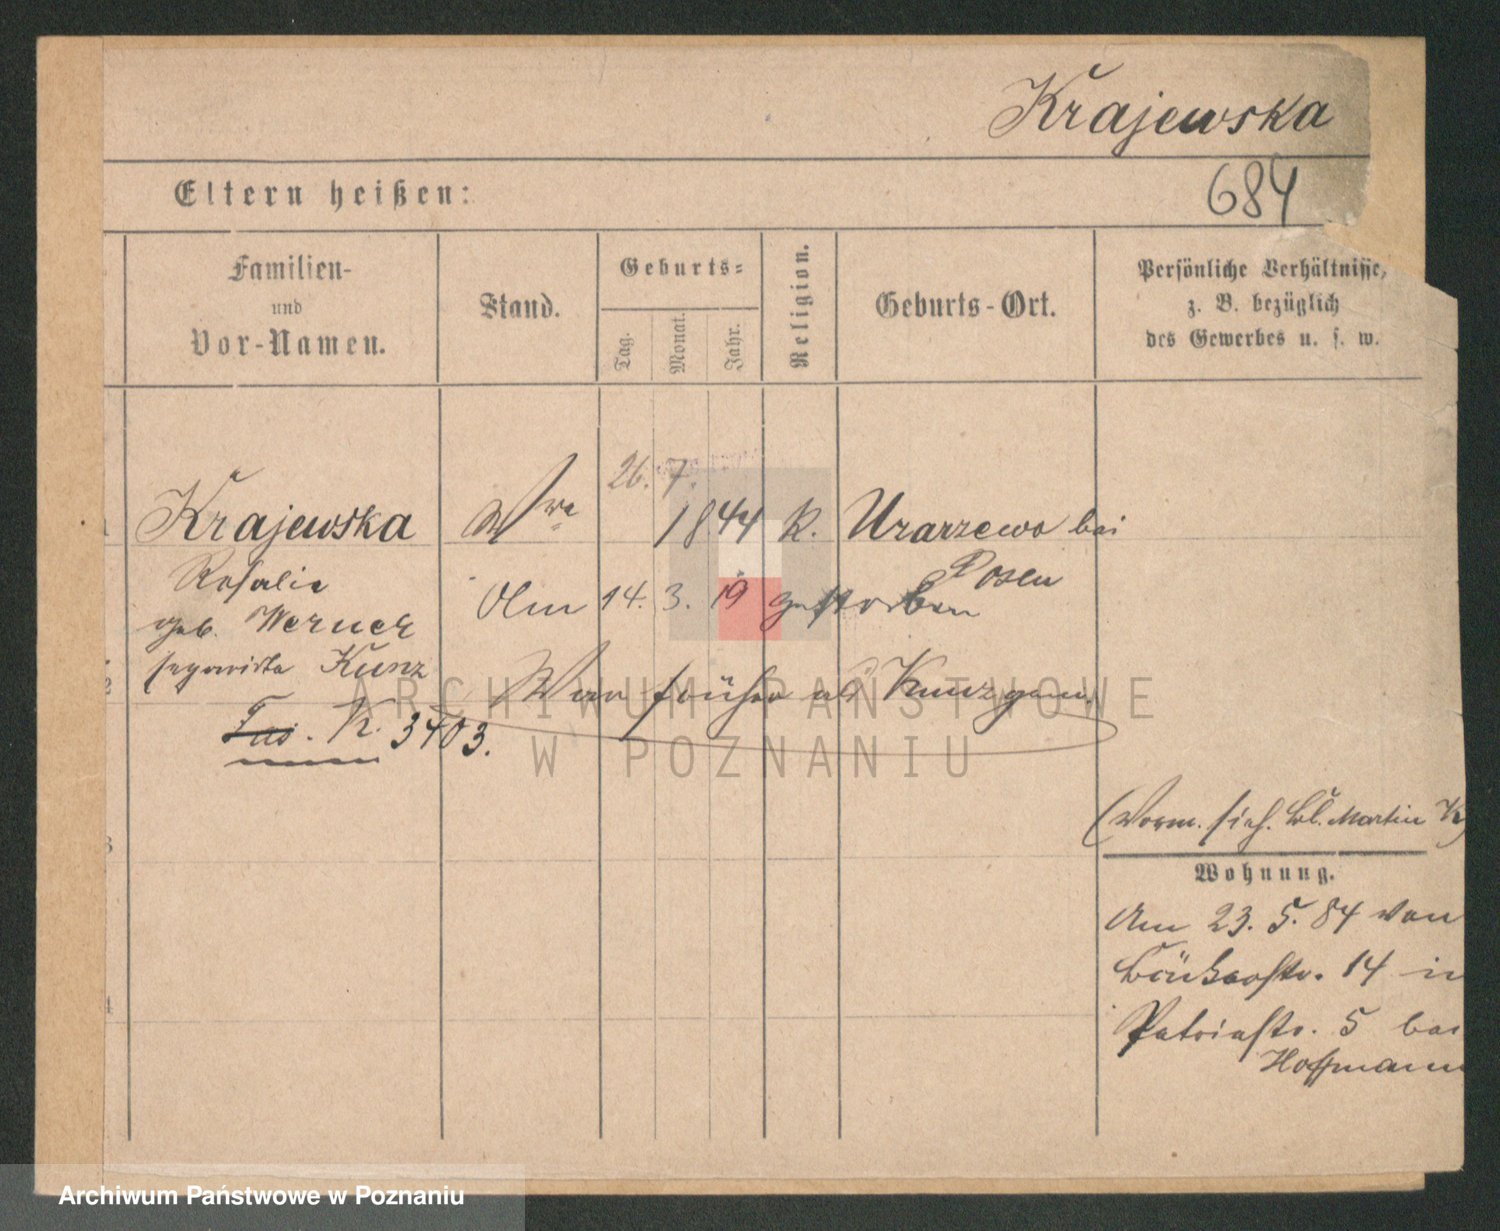 Krajewska
684
Eltern heißen:
Familien-
und
Vor-Namen.
Stand.
Geburts-
Tag.
Monat.
Jahr.
Religion.
Geburts-Ort.
Persönliche Verhältnisse,
z. B. bezüglich
des Gewerbes u. s. w.
26. 7.
Krajewska Wwe 1844 k. Urarzewo bei
Posen
Rosalie
geb. Werner
separirte Kunz
Am 14. 3. 19 gestorben
War früher als Kunz gem.
K. 3403.
2
3
4
(Vorm. sieh. Bl. Martin K)
Wohnung.
Am 23. 5. 84 von
14 in
Patristr. 5 bei
Hoffmann
ARCHIWUM PAŃSTWOWE
W POZNANIU
Archiwum Państwowe w Poznaniu